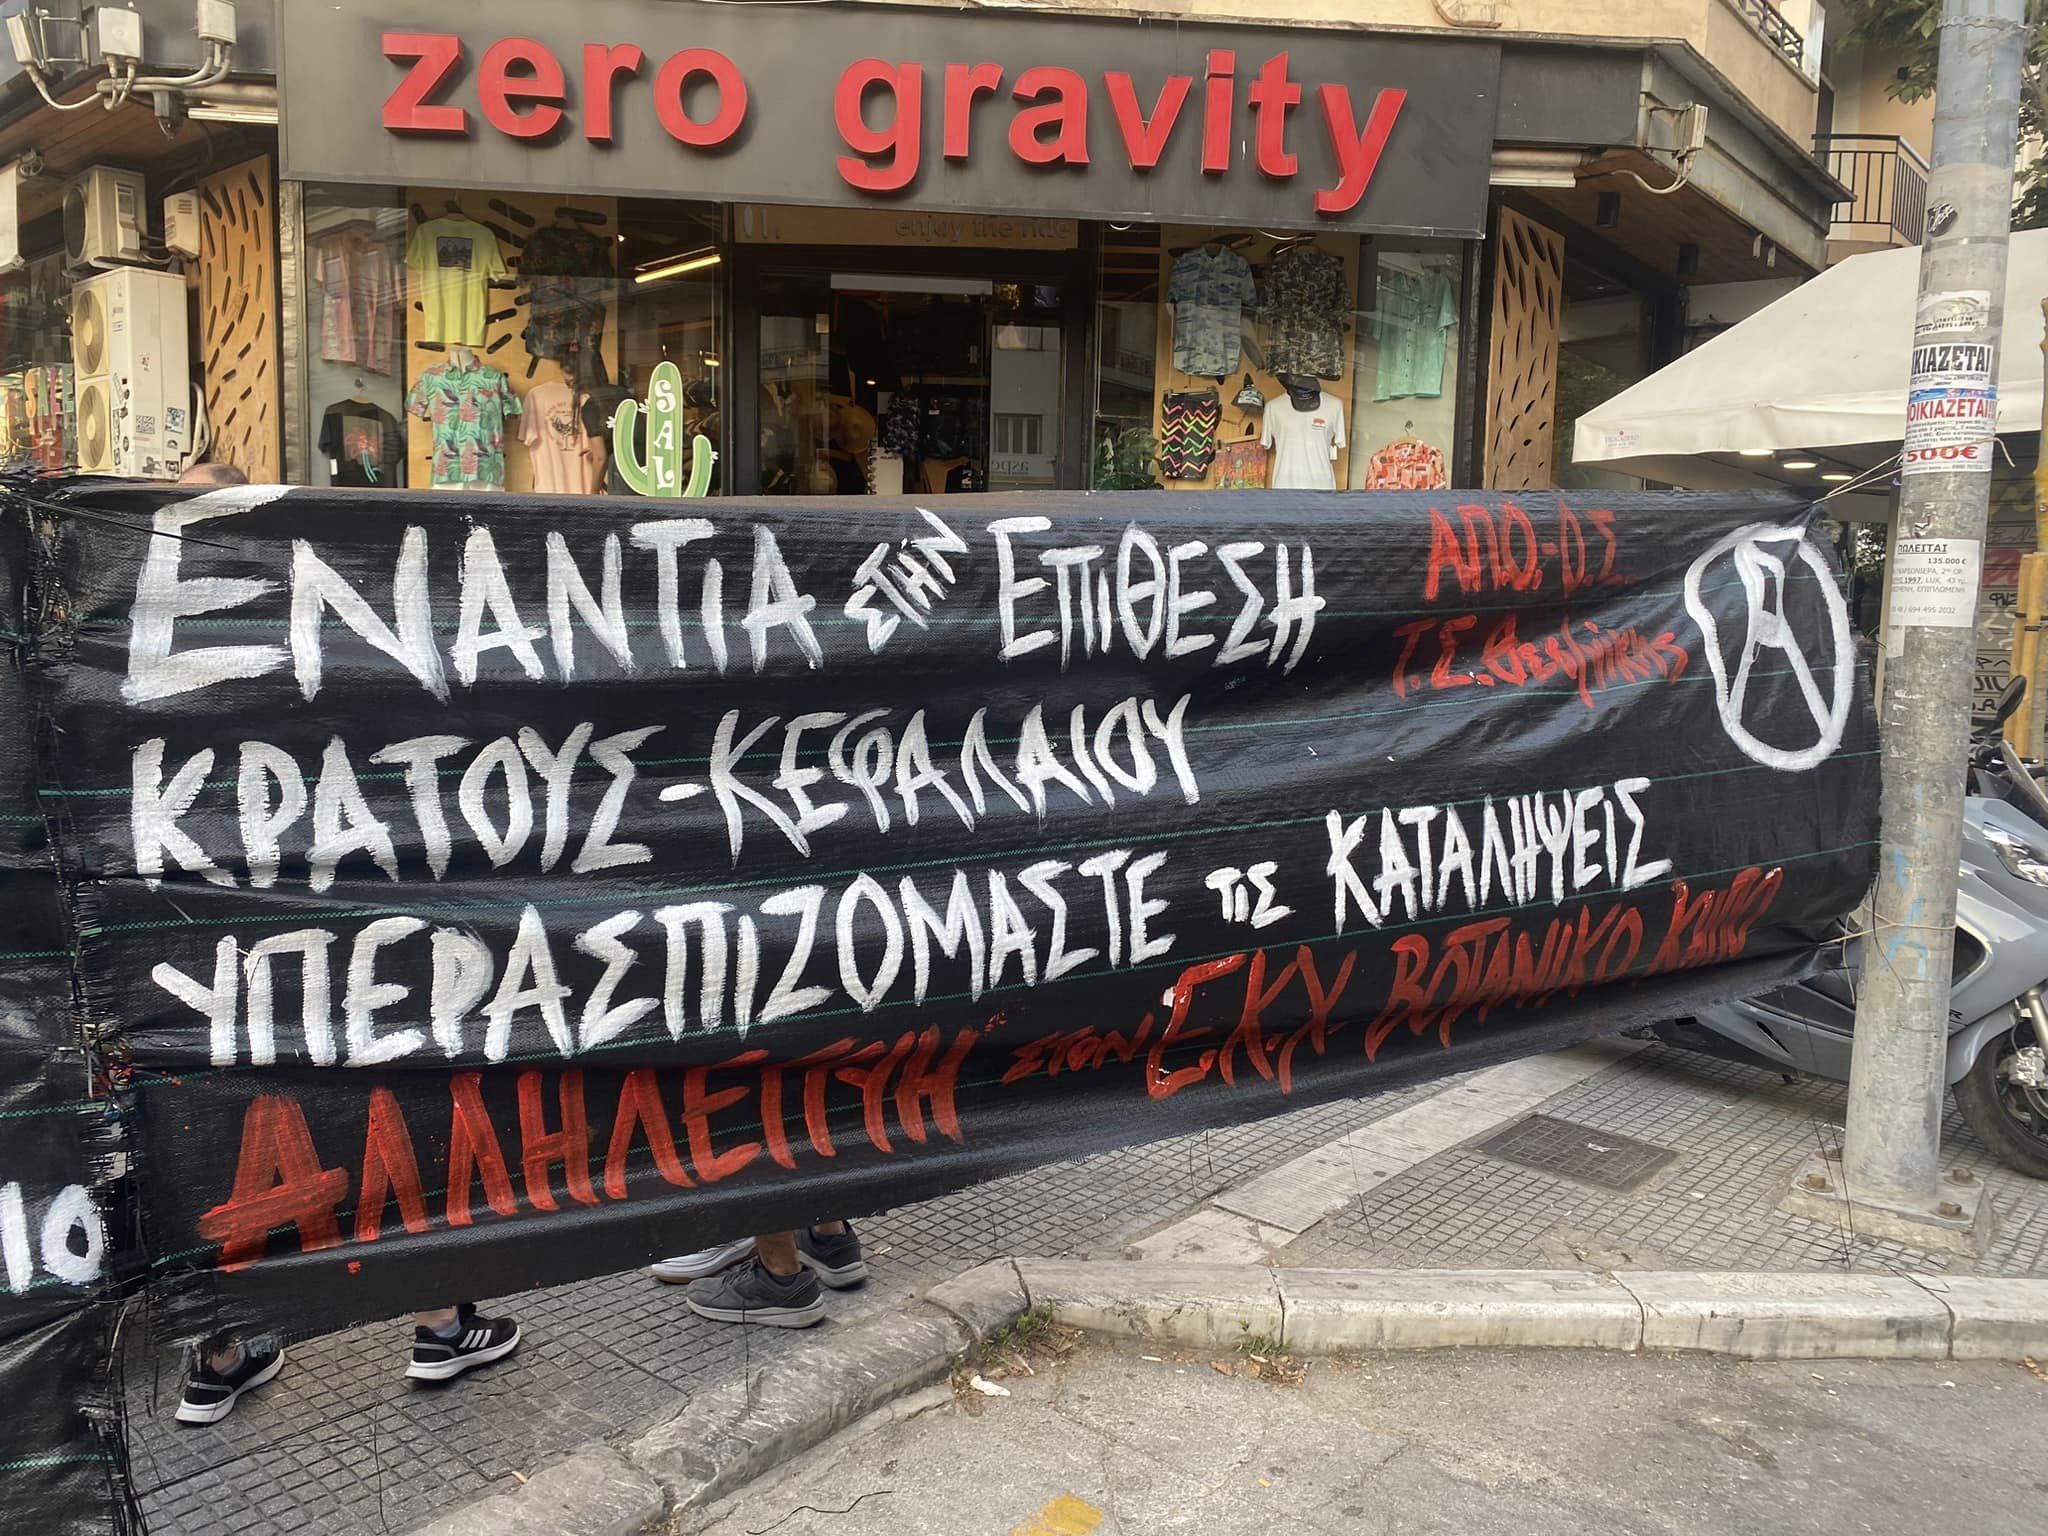 zero gravity
enjoy the ride
SAL
ΕΝΑΝΤΙΑ ΣΤΗΝ ΕΠΙΘΕΣΗ
ΚΡΑΤΟΥΣ-ΚΕΦΑΛΑΙΟΥ
ΥΠΕΡΑΣΠΙΖΟΜΑΣΤΕ ΤΙΣ ΚΑΤΑΛΗΨΕΙΣ
ΑΛΛΗΛΕΓΓΥΗ ΣΤΟΝ Ε.Κ.Χ. ΒΟΤΑΝΙΚΟΥ ΚΗΠΟΥ
ΑΠΟ.-Ο.Σ.
Τ.Σ. Θεσ/νίκης
A
ΙΟ
ΙΚΙΑΖΕΤΑΙ
ΟΙΚΙΑΖΕΤΑΙ!!
500€
ΠΩΛΕΙΤΑΙ
135.000 €
1997, LUX, 43 τμ.
ΕΠΙΠΛΩΜΕΝΗ
694 495 2032